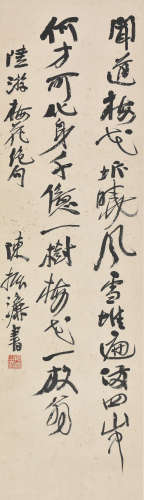 聞道梅花坼曉風雪堆遍滿四山中
何方可化身千億一樹梅花一放翁
陸游梅花絕句 陳振濂書